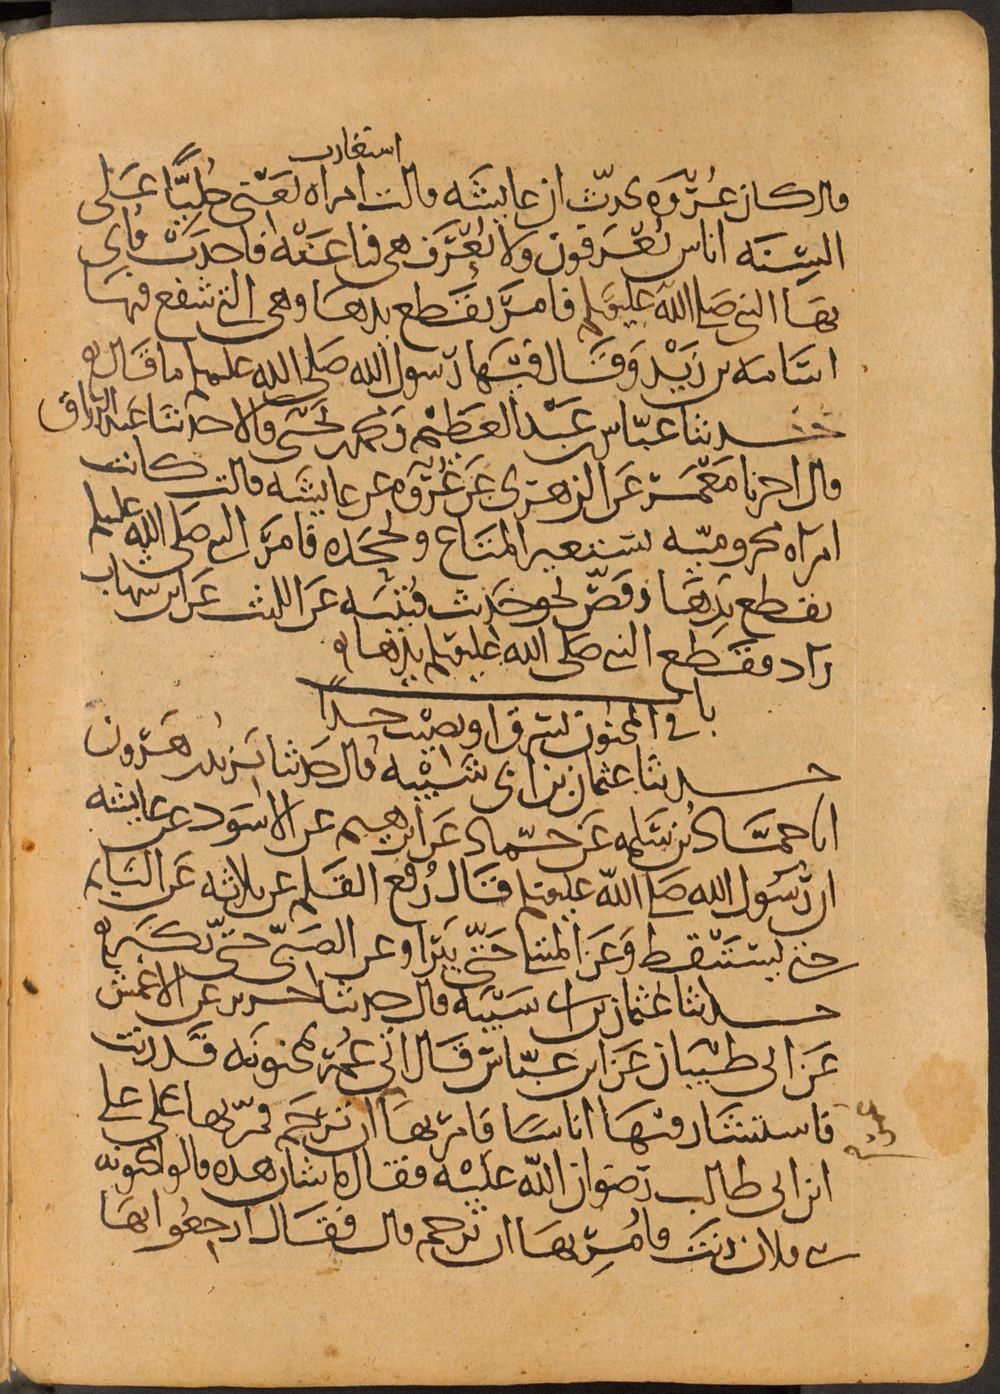 استعارت
قال كان عروة يحدث ان عايشه قالت امراه تعني حليا على
السنه اناس يعرفون ولا تعرف هي فباعته فاخذت فاتي
بها النبي صلى الله عليه وسلم فامر بقطع يدها وهي التي شفع فيها
اسامه بن زيد وقال فيها رسول الله صلى الله عليه وسلم ما قال
حدثنا عباس بن عبد العظيم ومحمد بن يحيى قالا حدثنا عبد الرزاق
قال اخبرنا معمر عن الزهري عن عروه عن عايشه قالت كانت
امراه مخزوميه تستعير المتاع وتجحده فامر النبي صلى الله عليه وسلم
بقطع يدها وقص نحو حديث قتيبه عن الليث عن ابن شهاب
زاد فقطع النبي صلى الله عليه وسلم يدها
باب في المجنون يسرق او يصيب حدا
حدثنا عثمان بن ابي شيبه قال حدثنا يزيد بن هرون
انا حماد بن سلمه عن حماد عن ابرهيم عن الاسود عن عايشه
ان رسول الله صلى الله عليه وسلم قال رفع القلم عن ثلاثه عن النايم
حتى يستيقظ وعن المبتلى حتى يبرا وعن الصبي حتى يكبر
حدثنا عثمان بن ابي شيبه قال حدثنا جرير عن الاعمش
عن ابي ظبيان عن ابن عباس قال اتي عمر بمجنونه قد زنت
فاستشار فيها اناسا فامر بها ان ترجم فمر بها على علي
ابن ابي طالب رضوان الله عليه فقال ما شان هذه قالوا مجنونه
بني فلان زنت فامر بها ان ترجم قال فقال ارجعوا بها